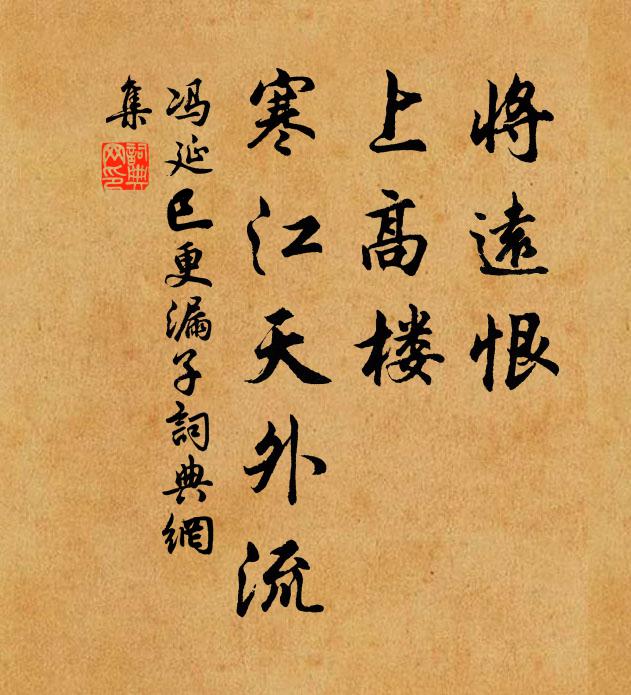 將遠恨
上高楼
寒江天外流
冯延巳更漏子詞典網
集
詞典
网印